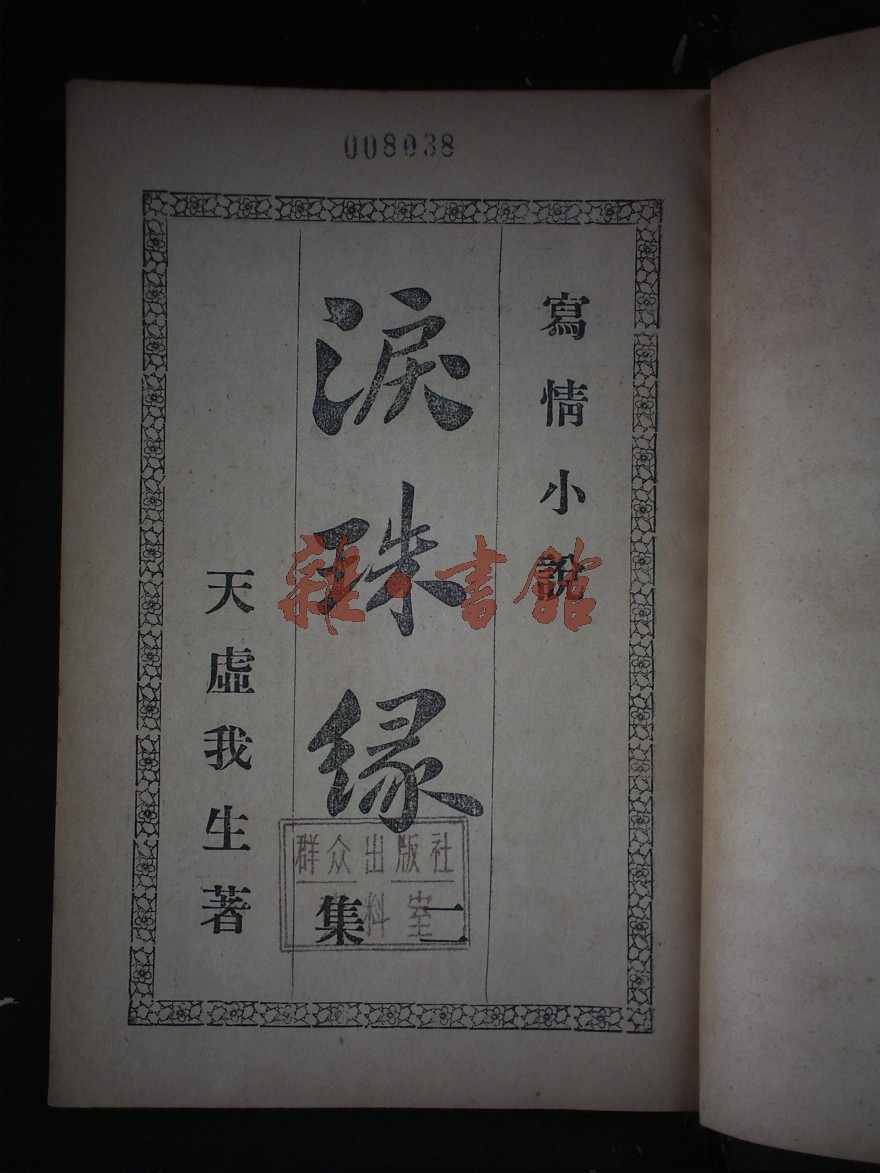 008038
寫情小說
淚珠緣
二集
天虛我生著
群众出版社
资料室
雜·書館